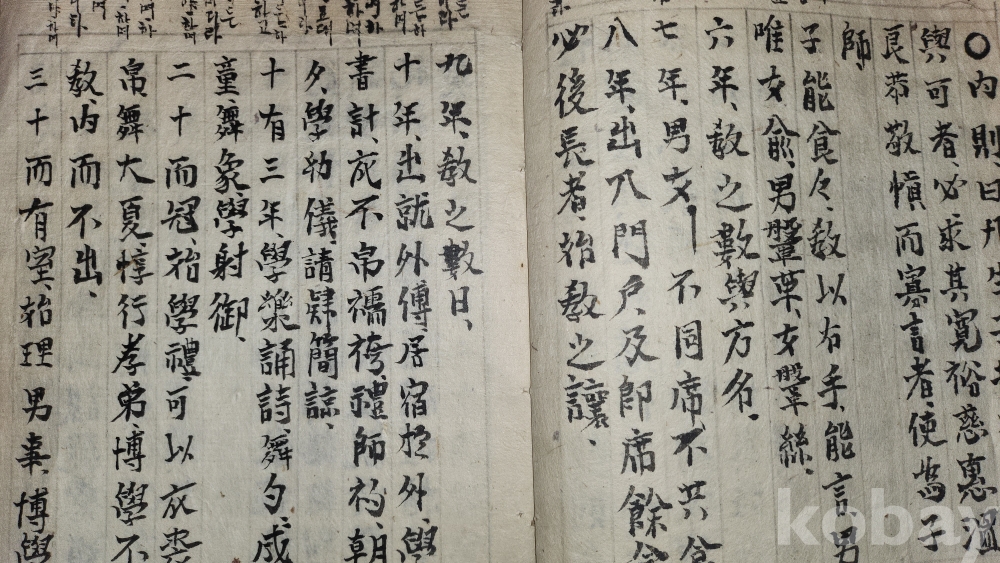 ○內則曰凡生子擇
與可者、必求其寬裕慈惠溫
良恭敬愼而寡言者、使爲子
師
子能食々、敎以右手、能言男
唯女兪、男鞶革、女鞶絲、
六年、敎之數與方名、
七年、男女不同席、不共食
八年、出入門戶、及卽席餘食
必後長者、始敎之讓、
九年、敎之數日、
十年、出就外傅、居宿於外、學
書計、衣不帛襦袴、禮師初、朝
夕、學幼儀、請肄簡諒、
十有三年、學樂誦詩、舞勺、成
童、舞象、學射御、
二十而冠、始學禮、可以衣裘
帛、舞大夏、惇行孝弟、博學不
敎、內而不出、
三十而有室、始理男事、博學
kobay